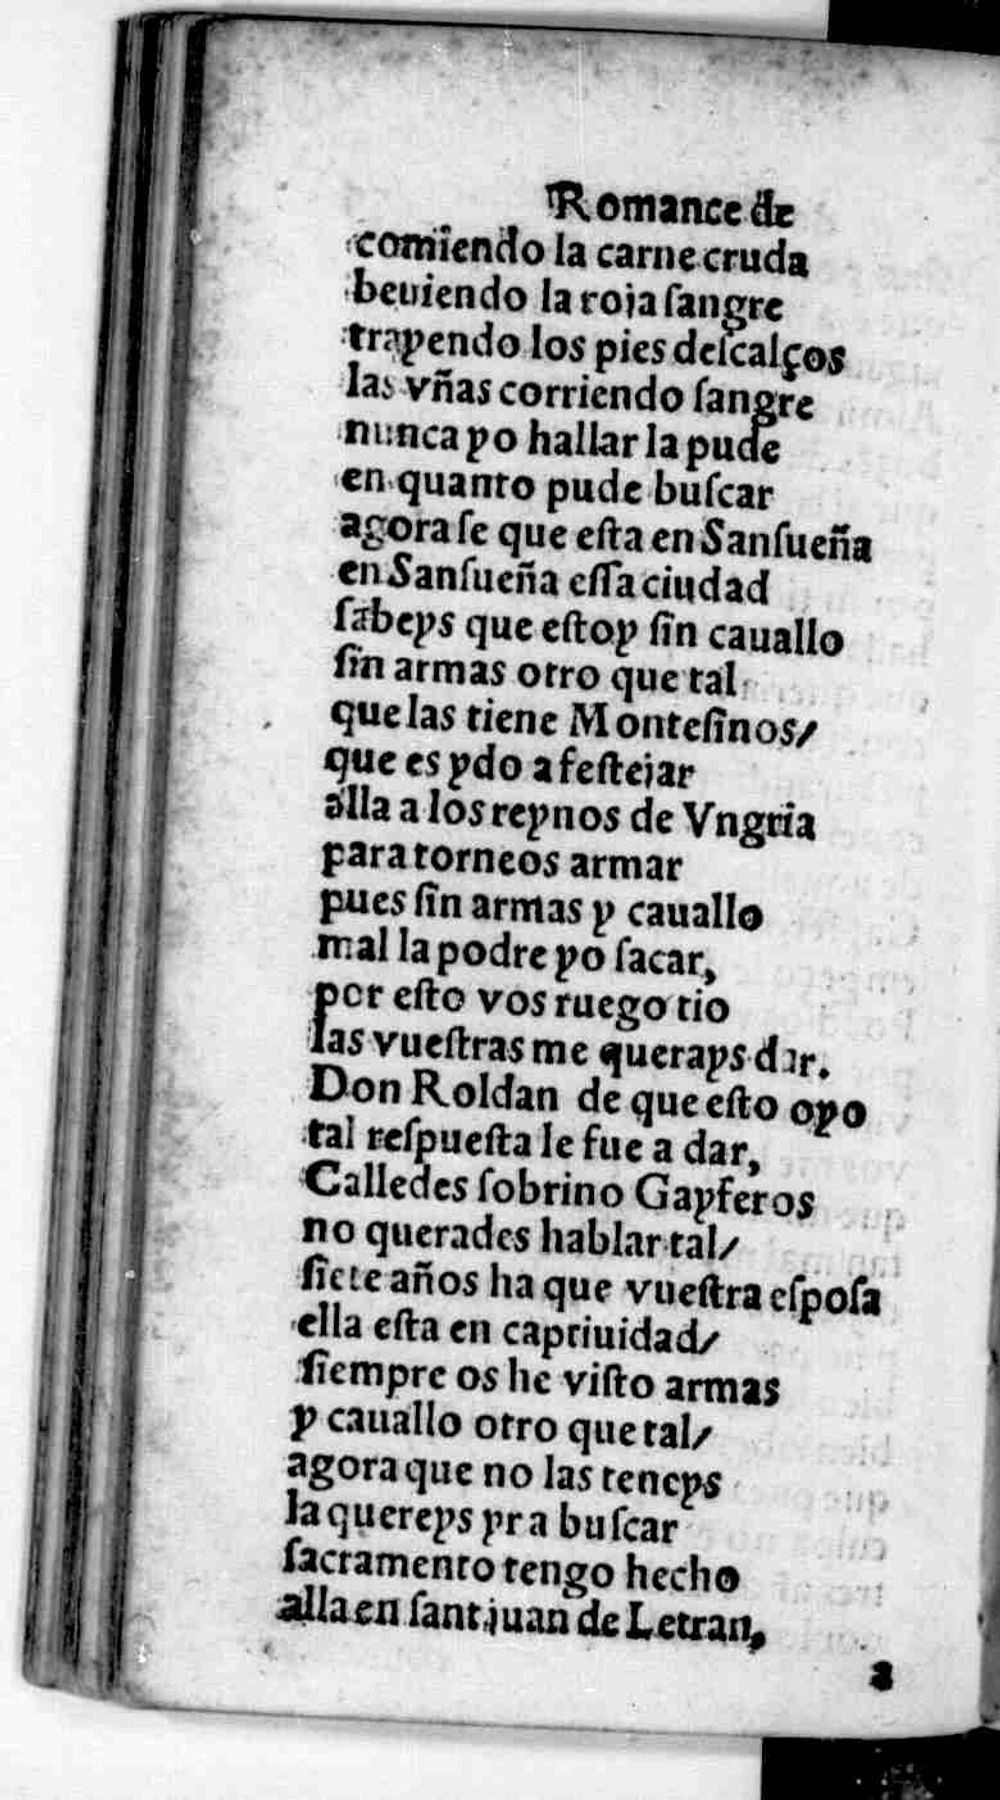 Romance de
comiendo la carne cruda
beuiendo la roja ſangre
trayendo los pies deſcalços
las vñas corriendo ſangre
nunca yo hallar la pude
en quanto pude buſcar
agora ſe que eſta en Sanſueña
en Sanſueña eſſa ciudad
ſabeys que eſtoy ſin cauallo
ſin armas otro que tal
que las tiene Monteſinos/
que es ydo a feſtejar
alla a los reynos de Vngria
para torneos armar
pues ſin armas y cauallo
mal la podre yo ſacar,
por eſto vos ruego tio
las vueſtras me querays dar.
Don Roldan de que eſto oyo
tal reſpueſta le fue a dar,
Calledes ſobrino Gayferos
no querades hablar tal/
ſiete años ha que vueſtra eſpoſa
ella eſta en captiuidad/
ſiempre os he viſto armas
y cauallo otro que tal/
agora que no las teneys
la quereys yr a buſcar
ſacramento tengo hecho
alla en ſant juan de Letran,
a